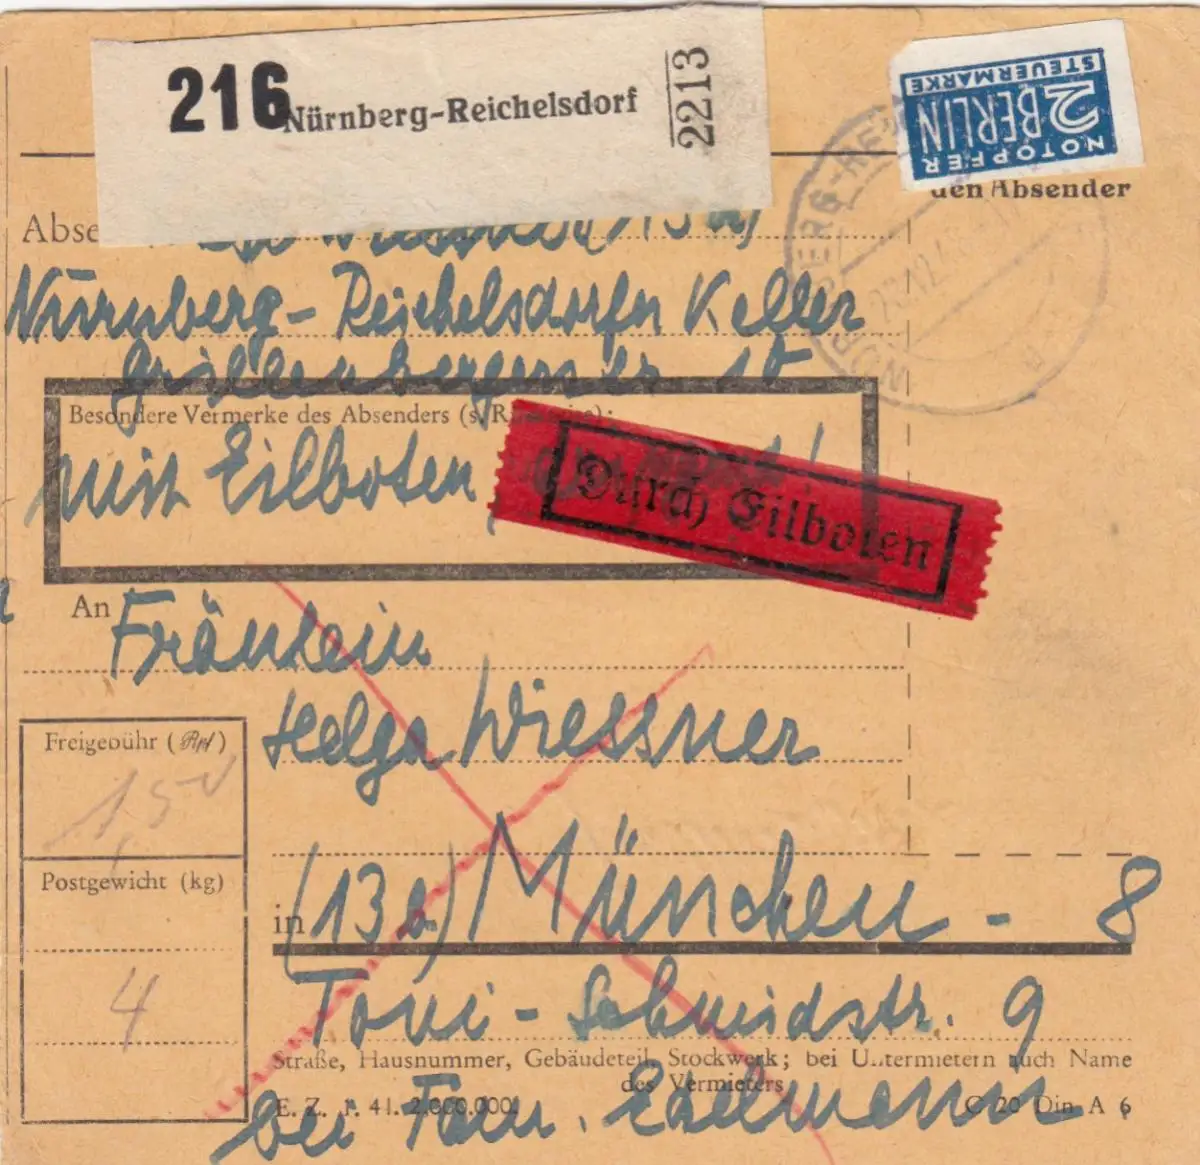 216 Nürnberg-Reichelsdorf 2213
NOTOPFER
2 BERLIN
STEUERMARKE
den Absender
Abse
Nürnberg - Reichelsdorfer Keller
Besondere Vermerke des Absenders (s. R
mit Eilboten,
Durch Eilboten
An Fräulein
Helga Wiessner
Freigebühr (Rpf)
1,50
Postgewicht (kg)
4
in (13a) München - 8
Toni - Schmidstr. 9
Straße, Hausnummer, Gebäudeteil, Stockwerk; bei Untermietern auch Name
des Vermieters
bei Fam. Edelmann
E. Z. r. 41. 2.600.000. C 20 Din A 6